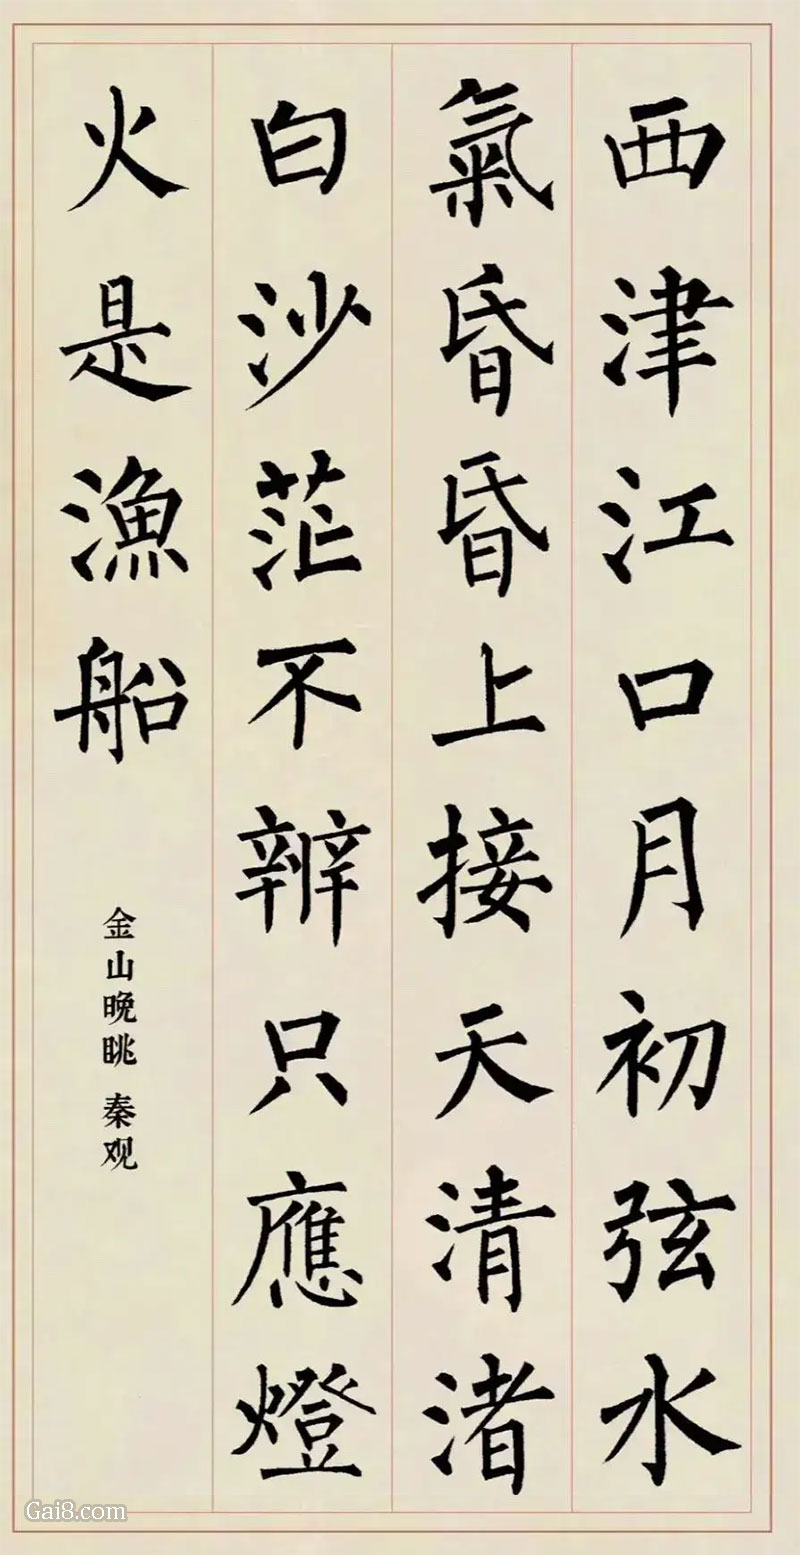 西津江口月初弦水
氣昏昏上接天清渚
白沙茫不辨只應燈
火是漁船
金山晚眺 秦观
Gai8.com